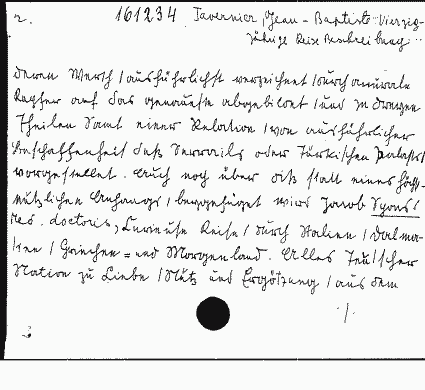 2. 161234 Tavernier, Jean-Baptiste: Vierzig-
jährige Reise Beschreibung ..
deren Werth / ausführlichst verzeichnet / durch
Kupfer auf das genaueste abgebildet / und in dreyen
Theilen Samt einer Relation / von ausführlicher
Beschaffenheit deß Serrails oder Türkischen Palasts /
vorgestellet. Auch noch über diß statt eines höchst-
nützlichen Anhangs / beygefüget wird Jacob Spons /
Med. doctoris, Curieuse Reise / durch Italien / Dalma-
tien / Griechen- und Morgenland. Alles Teutscher
Nation zu Liebe / Nutz und Ergötzung / aus dem
./.